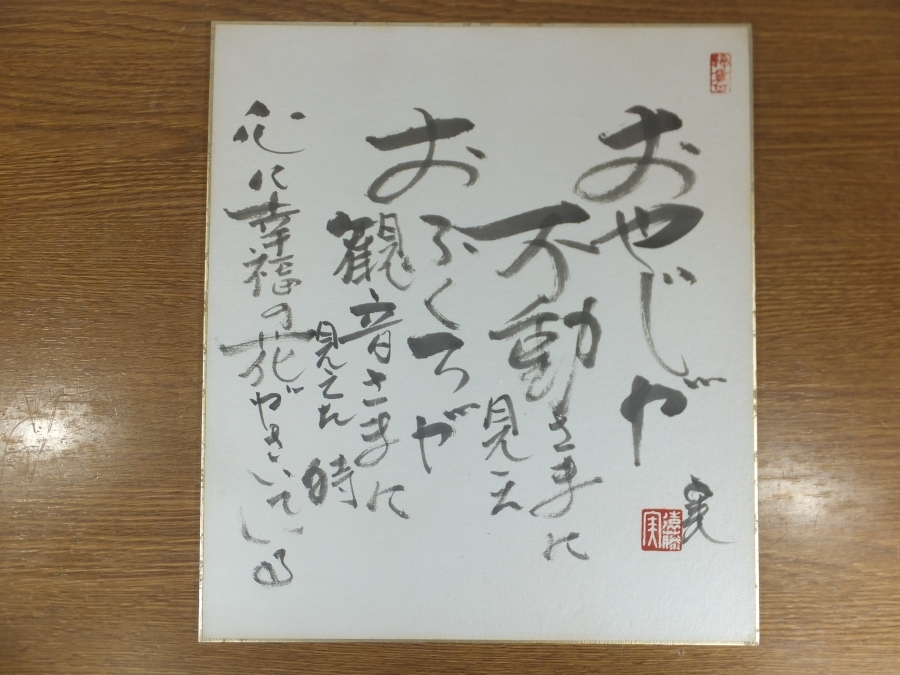 おやじが
不動さまに
見え
おふくろが
観音さまに
見えた時
心に幸福の花がさいている
実
遠藤実